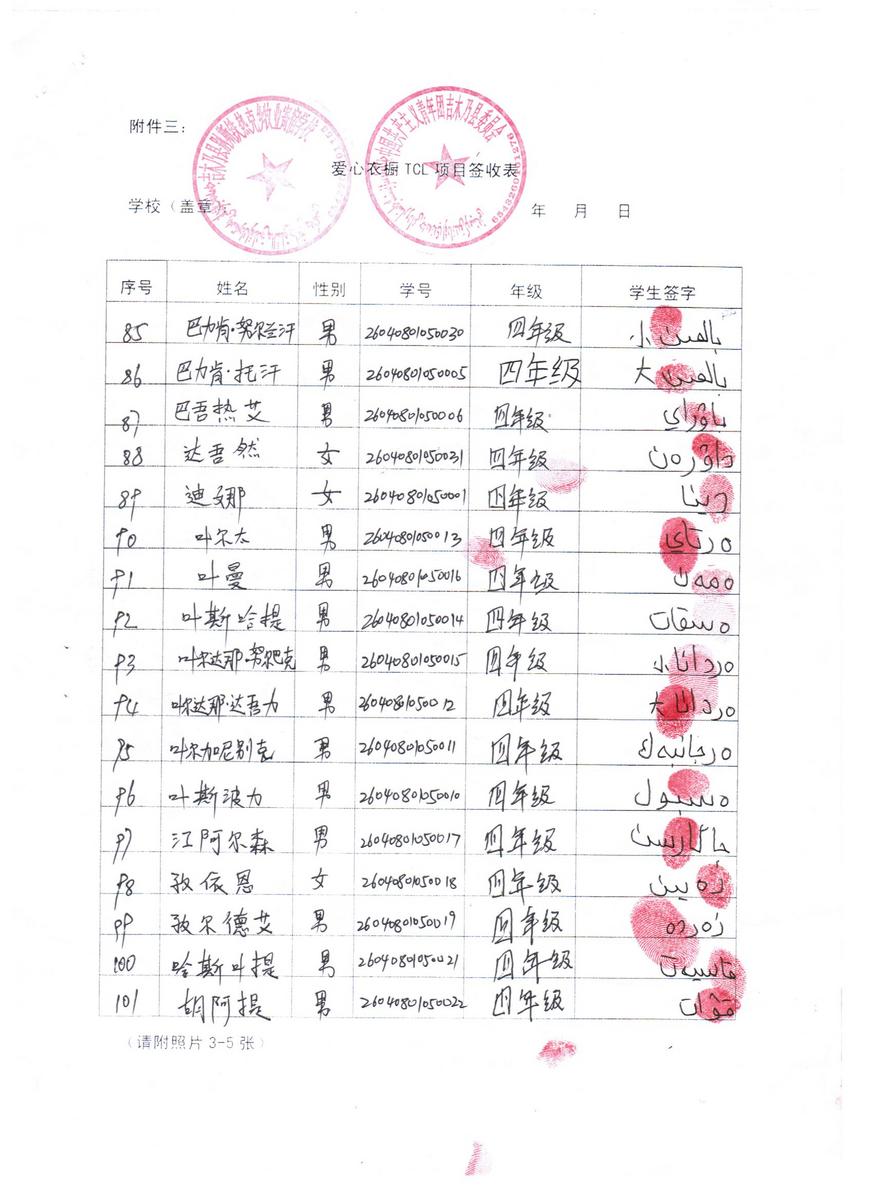 附件三：
爱心衣橱 TCL 项目签收表
学校（盖章 年 月 日
序号 姓名 性别 学号 年级 学生签字
85 巴力肯·努尔兰汗 男 26040801050030 四年级
86 巴力肯·托汗 男 26040801050005 四年级 大
87 巴吾热艾 男 26040801050006 四年级 باۋراي
88 达吾然 女 26040801050031 四年级 داۋرەن
89 迪娜 女 26040801050001 四年级 دينا
90 叶尔太 男 26040801050013 四年级 ەرتاي
91 叶曼 男 26040801050016 四年级 ەمەن
92 叶斯哈提 男 26040801050014 四年级 ەسقات
93 叶尔达那·努尔肥克 男 26040801050015 四年级 ەردانا
94 叶尔达那·达吾力 男 26040801050012 四年级 ەردانا 大
95 叶尔加尼别克 男 26040801050011 四年级 ەرجانبەك
96 叶斯波力 男 26040801050010 四年级 ەسبول
97 江阿尔森 男 26040801050017 四年级
98 孜依恩 女 26040801050018 四年级
99 孜尔德艾 男 26040801050019 四年级
100 哈斯叶提 男 26040801050021 四年级 قاسيەت
101 胡阿提 男 26040801050022 四年级 قۋات
（请附照片 3-5 张）